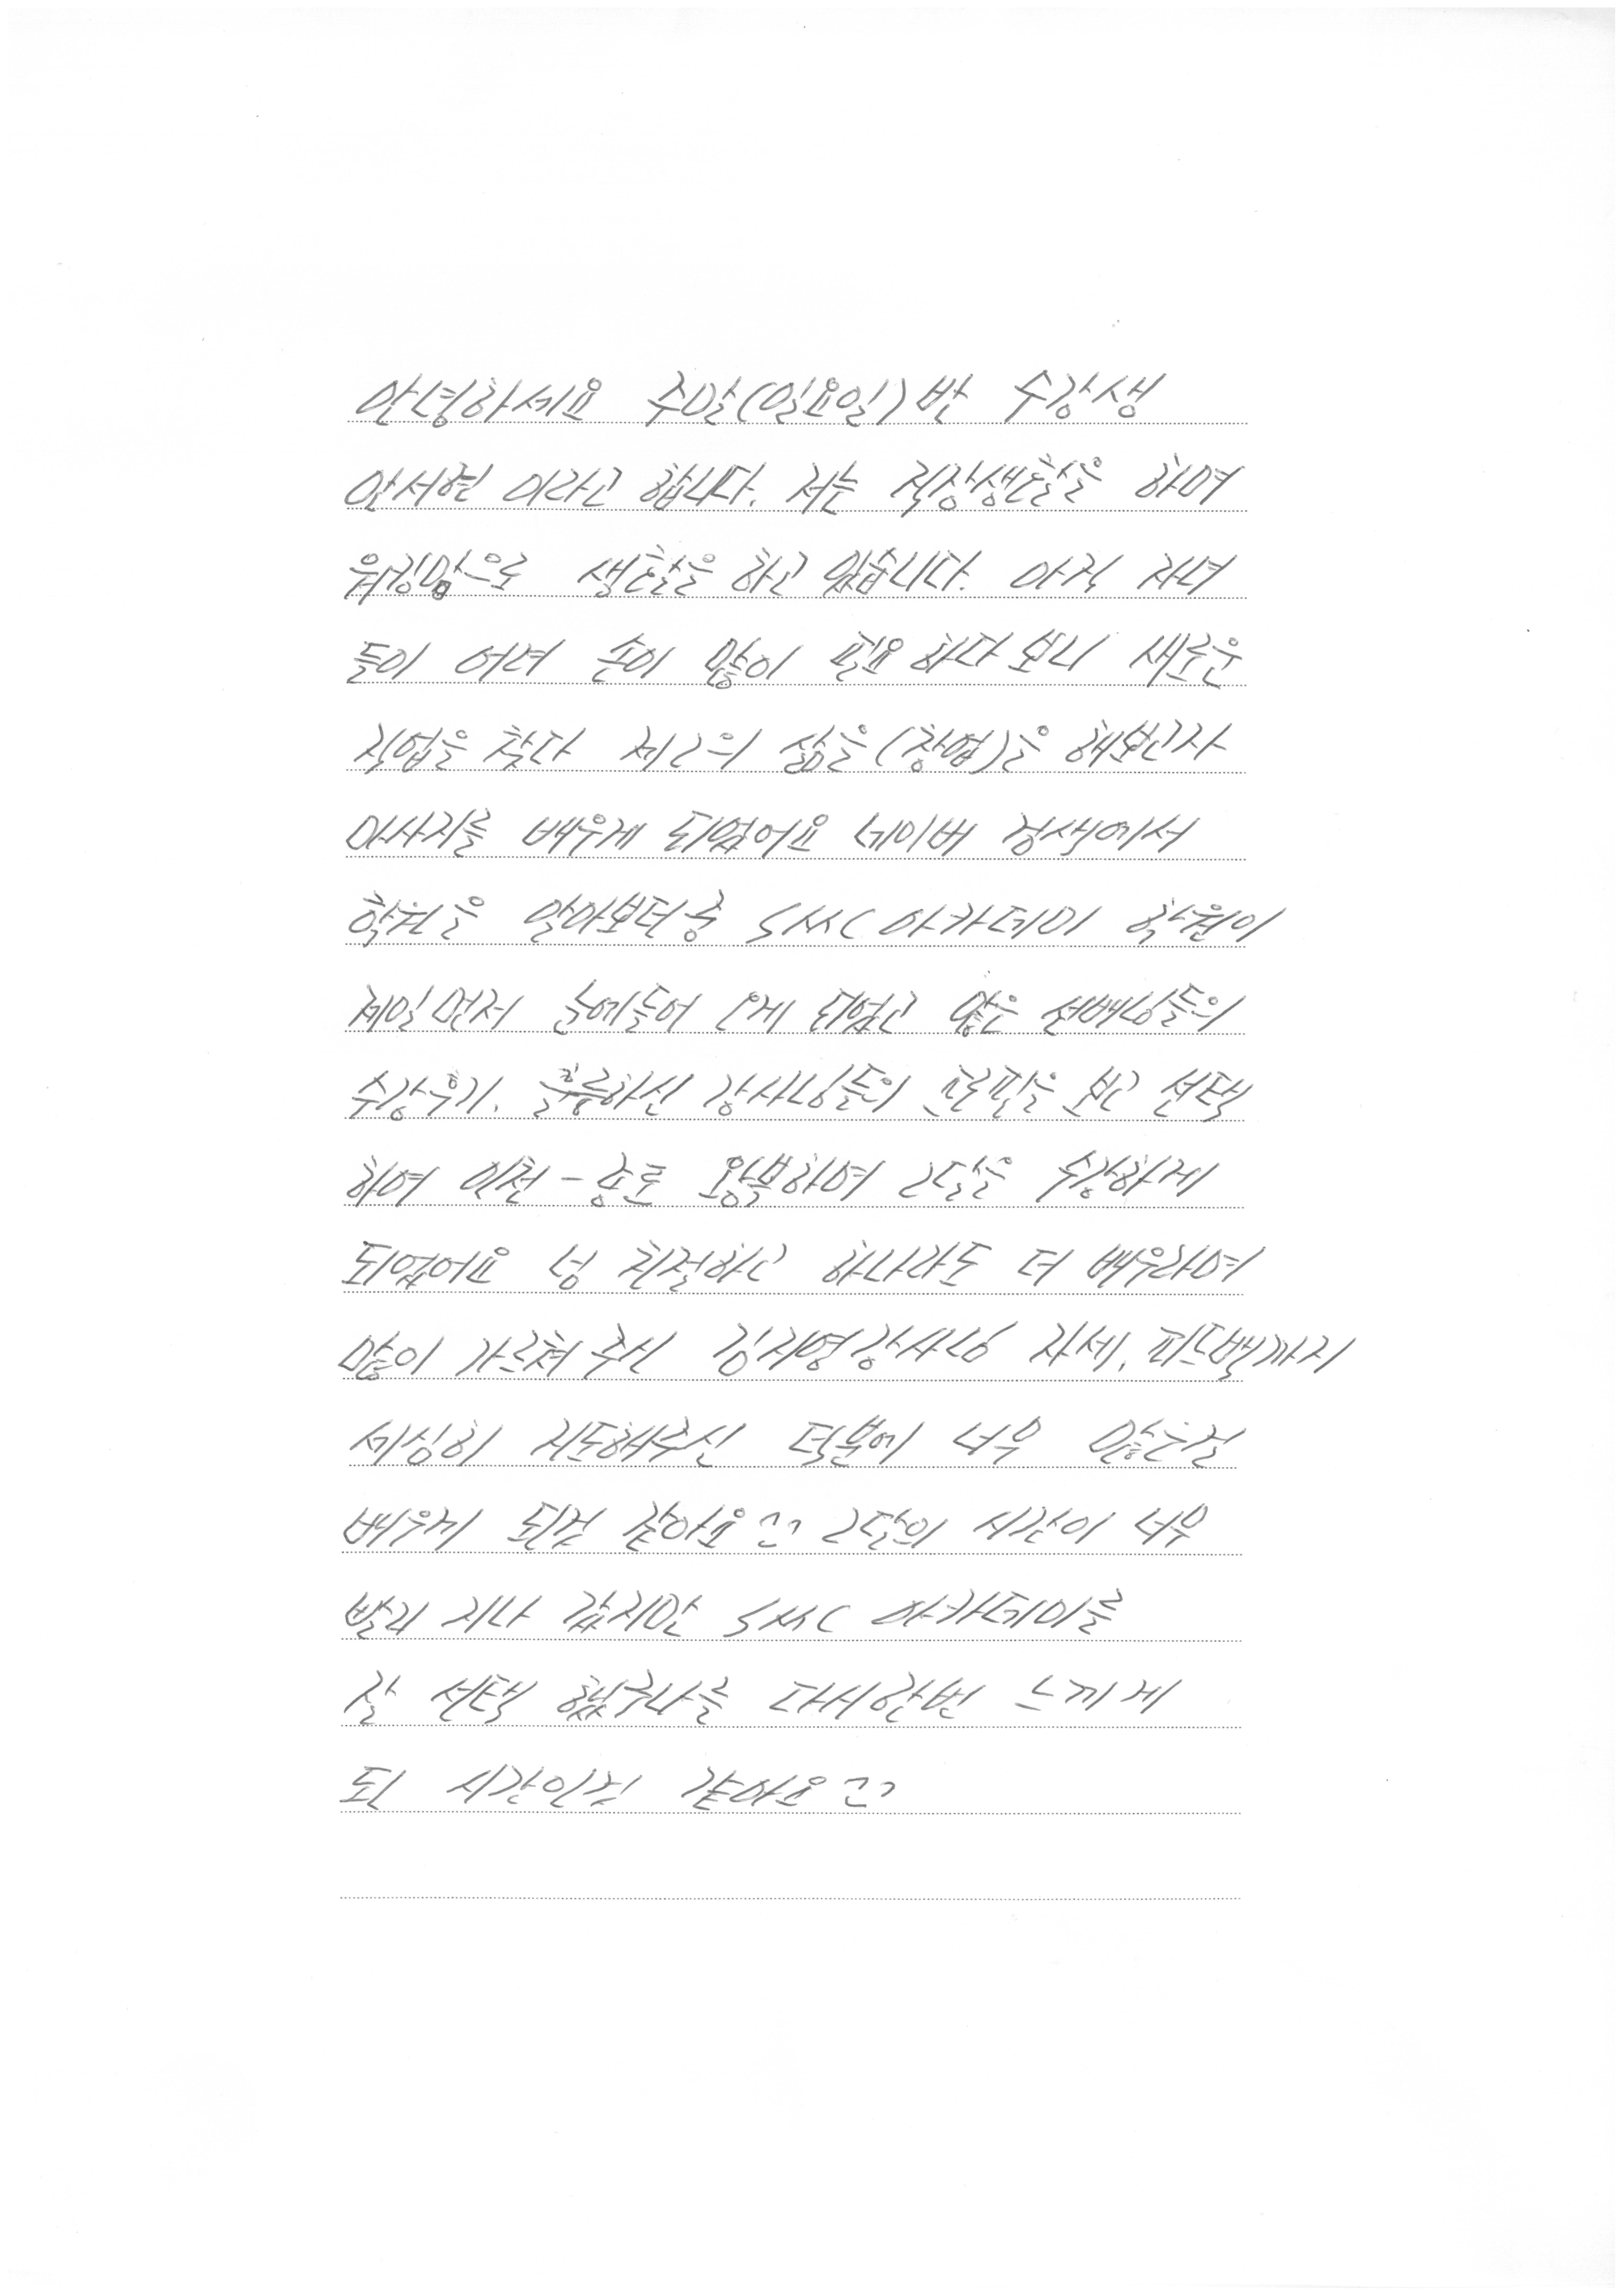 안녕하세요 주말(일요일)반 수강생
안서현 이라고 합니다. 저는 직장생활을 하며
워킹맘으로 생활을 하고 있습니다. 아직 자녀
들이 어려 손이 많이 필요하다보니 새로운
직업을 찾다 제2의 삶을(창업)을 해보고자
마사지를 배우게 되었어요 네이버 검색에서
학원을 알아보던중 SMC아카데미 학원이
제일먼저 눈에들어 오게 되었고 많은 선배님들의
수강후기. 훌륭하신 강사님들의 프로필을 보고 선택
하여 인천-종로 왕복하며 2달을 수강하게
되었어요 넘 친절하고 하나라도 더 배우라며
많이 가르쳐 주신 김지영강사님 자세, 피드백까지
세심히 지도해주신 덕분에 너무 많은걸
배우게 된것 같아요^^ 2달의 시간이 너무
빨리 지나 갔지만 SMC 아카데미를
잘 선택 했구나를 다시한번 느끼게
된 시간인것 같아요^^